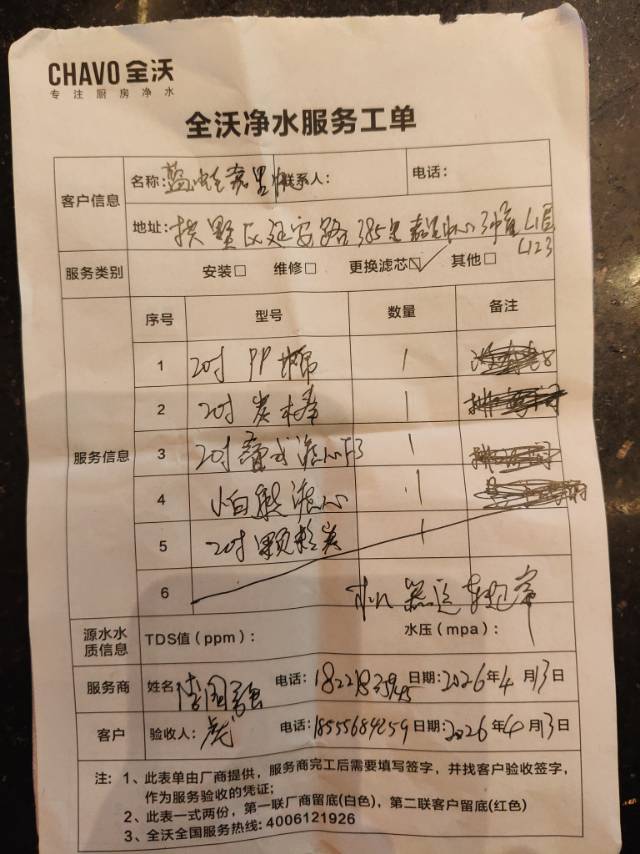 CHAVO 全沃
专注厨房净水
全沃净水服务工单
客户信息
名称: 蓝蛙嘉里 联系人: 电话:
地址: 拱墅区延安路385号嘉里中心3幢 L1层
L123
服务类别 安装□ 维修□ 更换滤芯☑ 其他□
服务信息
序号 型号 数量 备注
1 20寸 PP棉 1
2 20寸 炭棒 1
3 20寸 滤芯 1
4 小白 滤芯 1
5 20寸 颗粒炭 1
6
源水水质信息 TDS值(ppm): 水压(mpa):
服务商 姓名 李国强 电话: 日期: 2026年4月13日
客户 验收人: 电话: 18555684259 日期: 2026年4月13日
注: 1、此表单由厂商提供，服务商完工后需要填写签字，并找客户验收签字，
作为服务验收的凭证;
2、此表一式两份，第一联厂商留底(白色)，第二联客户留底(红色)
3、全沃全国服务热线: 4006121926